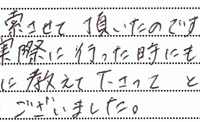 索させて頂いたのです
実際に行った時にも
に教えて下さって と
ございました。